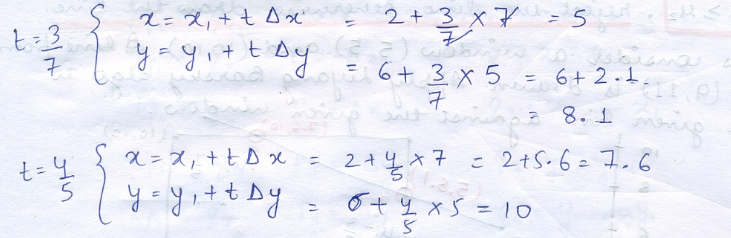 t = 3/7 { x = x₁ + t Δx = 2 + 3/7 × 7 = 5
y = y₁ + t Δy = 6 + 3/7 × 5 = 6 + 2.1
= 8.1
t = 4/5 { x = x₁ + t Δx = 2 + 4/5 × 7 = 2 + 5.6 = 7.6
y = y₁ + t Δy = 6 + 4/5 × 5 = 10